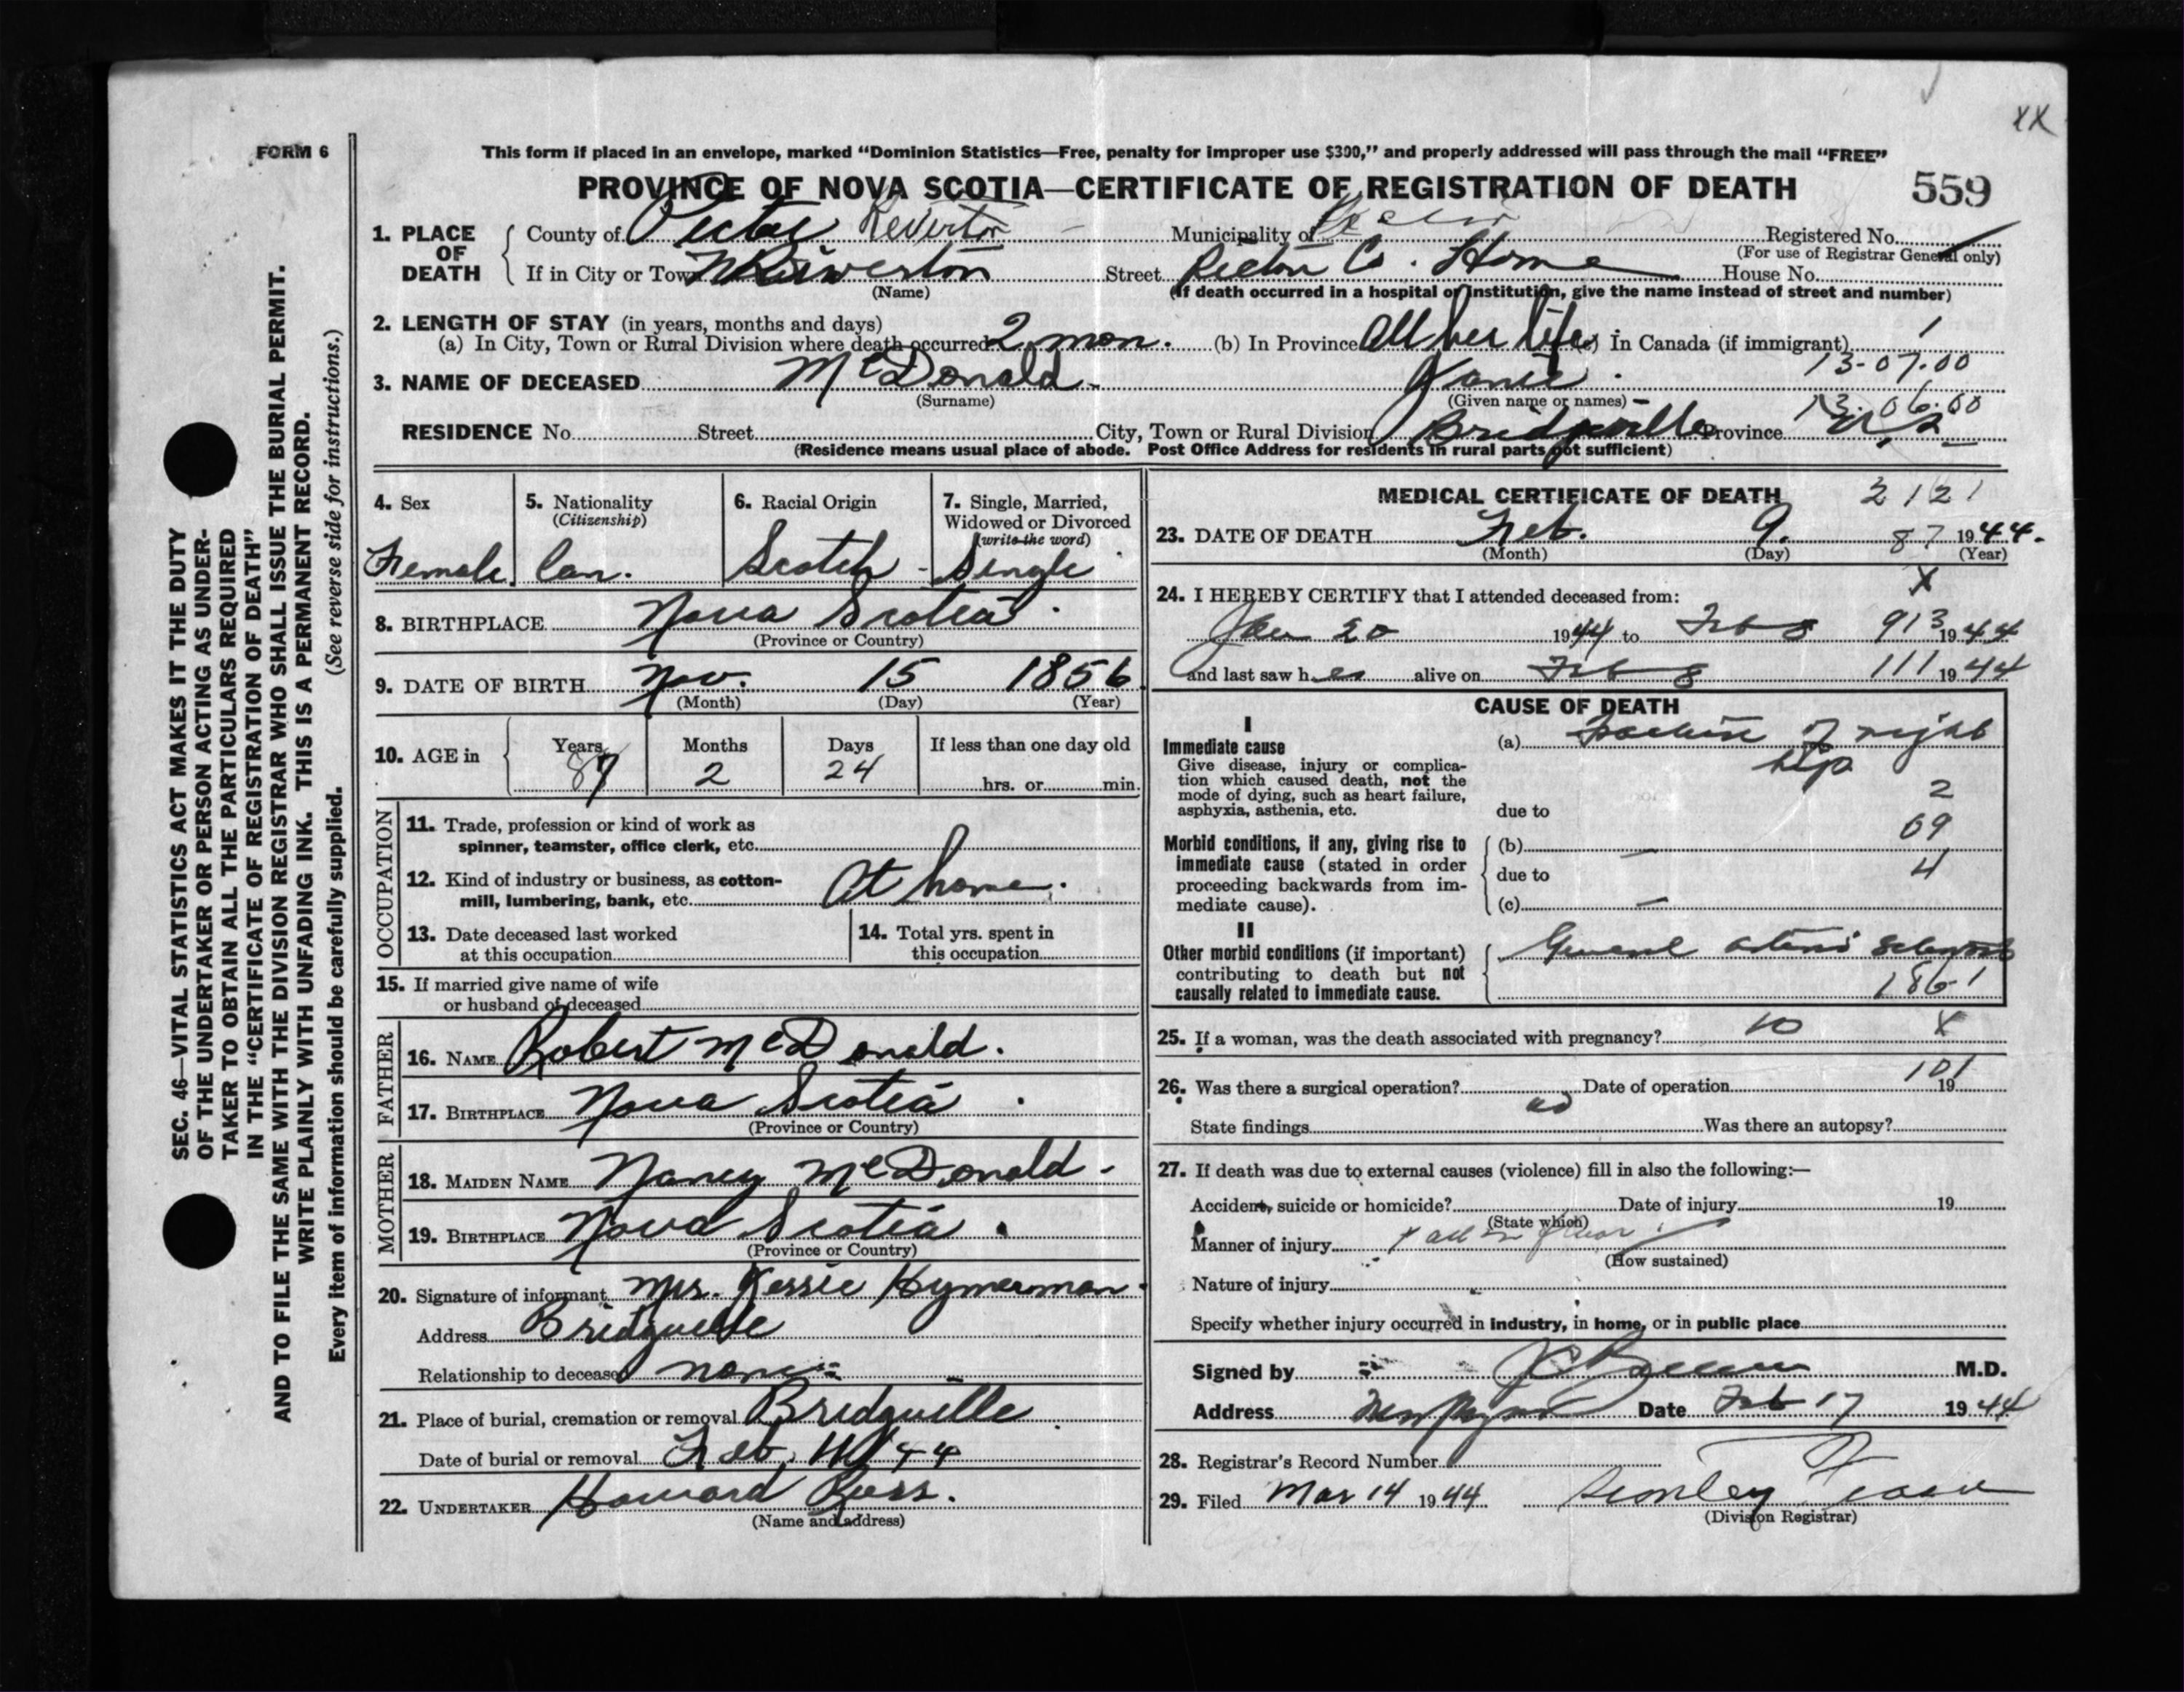 XX
FORM 6
This form if placed in an envelope, marked "Dominion Statistics—Free, penalty for improper use $300," and properly addressed will pass through the mail "FREE"
PROVINCE OF NOVA SCOTIA—CERTIFICATE OF REGISTRATION OF DEATH 559
1. PLACE OF DEATH
County of Pictou Riverton Municipality of Registered No.
(For use of Registrar General only)
If in City or Town Riverton Street Pictou Co. Home House No.
(Name) (If death occurred in a hospital or institution, give the name instead of street and number)
2. LENGTH OF STAY (in years, months and days)
(a) In City, Town or Rural Division where death occurred 2 mon. (b) In Province All her life (c) In Canada (if immigrant) 1
13-07-00
3. NAME OF DECEASED McDonald Janie
(Surname) (Given name or names)
13-06-00
RESIDENCE No. Street City, Town or Rural Division Bridgeville Province N.S.
(Residence means usual place of abode. Post Office Address for residents in rural parts not sufficient)
4. Sex 5. Nationality (Citizenship) 6. Racial Origin 7. Single, Married, Widowed or Divorced (write the word)
Female. Can. Scotch Single
8. BIRTHPLACE Nova Scotia
(Province or Country)
9. DATE OF BIRTH Nov. 15 1856
(Month) (Day) (Year)
10. AGE in Years Months Days If less than one day old
87 2 24 hrs. or min.
OCCUPATION
11. Trade, profession or kind of work as
spinner, teamster, office clerk, etc.
12. Kind of industry or business, as cotton-
mill, lumbering, bank, etc. At home.
13. Date deceased last worked
at this occupation
14. Total yrs. spent in
this occupation
15. If married give name of wife
or husband of deceased
FATHER
16. NAME Robert McDonald.
17. BIRTHPLACE Nova Scotia
(Province or Country)
MOTHER
18. MAIDEN NAME Nancy McDonald
19. BIRTHPLACE Nova Scotia
(Province or Country)
20. Signature of informant Mrs. Jessie Hymerman
Address Bridgeville
Relationship to deceased none
21. Place of burial, cremation or removal Bridgeville
Date of burial or removal Feb. 11/44
22. UNDERTAKER Howard Ross.
(Name and address)
MEDICAL CERTIFICATE OF DEATH 2121
23. DATE OF DEATH Feb. 9. 87 1944.
(Month) (Day) (Year)
X
24. I HEREBY CERTIFY that I attended deceased from:
Jan 20 1944 to Feb 8 913 1944
and last saw her alive on Feb 8 111 1944
CAUSE OF DEATH
I
Immediate cause
Give disease, injury or complica-
tion which caused death, not the
mode of dying, such as heart failure,
asphyxia, asthenia, etc.
(a) Fracture of right
hip
2
due to
09
Morbid conditions, if any, giving rise to
immediate cause (stated in order
proceeding backwards from im-
mediate cause).
(b) —
due to 4
(c) —
II
Other morbid conditions (if important)
contributing to death but not
causally related to immediate cause.
General arterio
1861
25. If a woman, was the death associated with pregnancy? no X
101
26. Was there a surgical operation? no Date of operation 19
State findings Was there an autopsy?
27. If death was due to external causes (violence) fill in also the following:—
Accident, suicide or homicide? Date of injury 19
(State which)
Manner of injury fall on floor
(How sustained)
Nature of injury
Specify whether injury occurred in industry, in home, or in public place
Signed by M.D.
Address Date Feb 17 1944
28. Registrar's Record Number
29. Filed Mar 14 1944 Stanley
(Division Registrar)
SEC. 46—VITAL STATISTICS ACT MAKES IT THE DUTY
OF THE UNDERTAKER OR PERSON ACTING AS UNDER-
TAKER TO OBTAIN ALL THE PARTICULARS REQUIRED
IN THE "CERTIFICATE OF REGISTRATION OF DEATH"
AND TO FILE THE SAME WITH THE DIVISION REGISTRAR WHO SHALL ISSUE THE BURIAL PERMIT.
WRITE PLAINLY WITH UNFADING INK. THIS IS A PERMANENT RECORD.
Every item of information should be carefully supplied. (See reverse side for instructions.)